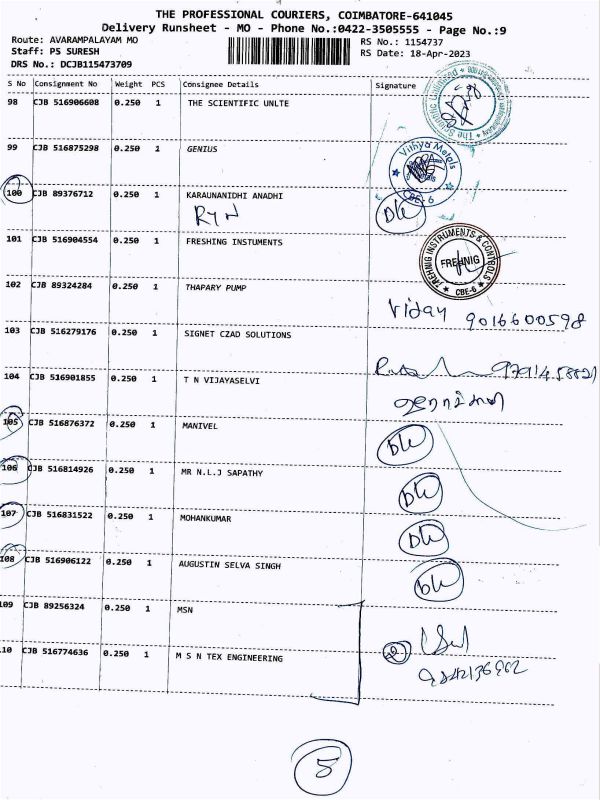 THE PROFESSIONAL COURIERS, COIMBATORE-641045
Delivery Runsheet - MO - Phone No.:0422-3505555 - Page No.:9
Route: AVARAMPALAYAM MO
Staff: PS SURESH
DRS No.: DCJB115473709
RS No.: 1154737
RS Date: 18-Apr-2023
S No Consignment No Weight PCS Consignee Details Signature
98 CJB 516906608 0.250 1 THE SCIENTIFIC UNLTE
99 CJB 516875298 0.250 1 GENIUS
Vidhya Metals
CBE-6
100 CJB 89376712 0.250 1 KARAUNANIDHI ANADHI
101 CJB 516904554 0.250 1 FRESHING INSTUMENTS
FREHNIG INSTRUMENTS & CONTROLS
FREHNIG
CBE-6
102 CJB 89324284 0.250 1 THAPARY PUMP
Vijay 9016600598
103 CJB 516279176 0.250 1 SIGNET CZAD SOLUTIONS
104 CJB 516901855 0.250 1 T N VIJAYASELVI
105 CJB 516876372 0.250 1 MANIVEL
106 CJB 516814926 0.250 1 MR N.L.J SAPATHY
107 CJB 516831522 0.250 1 MOHANKUMAR
108 CJB 516906122 0.250 1 AUGUSTIN SELVA SINGH
109 CJB 89256324 0.250 1 MSN
110 CJB 516774636 0.250 1 M S N TEX ENGINEERING
5